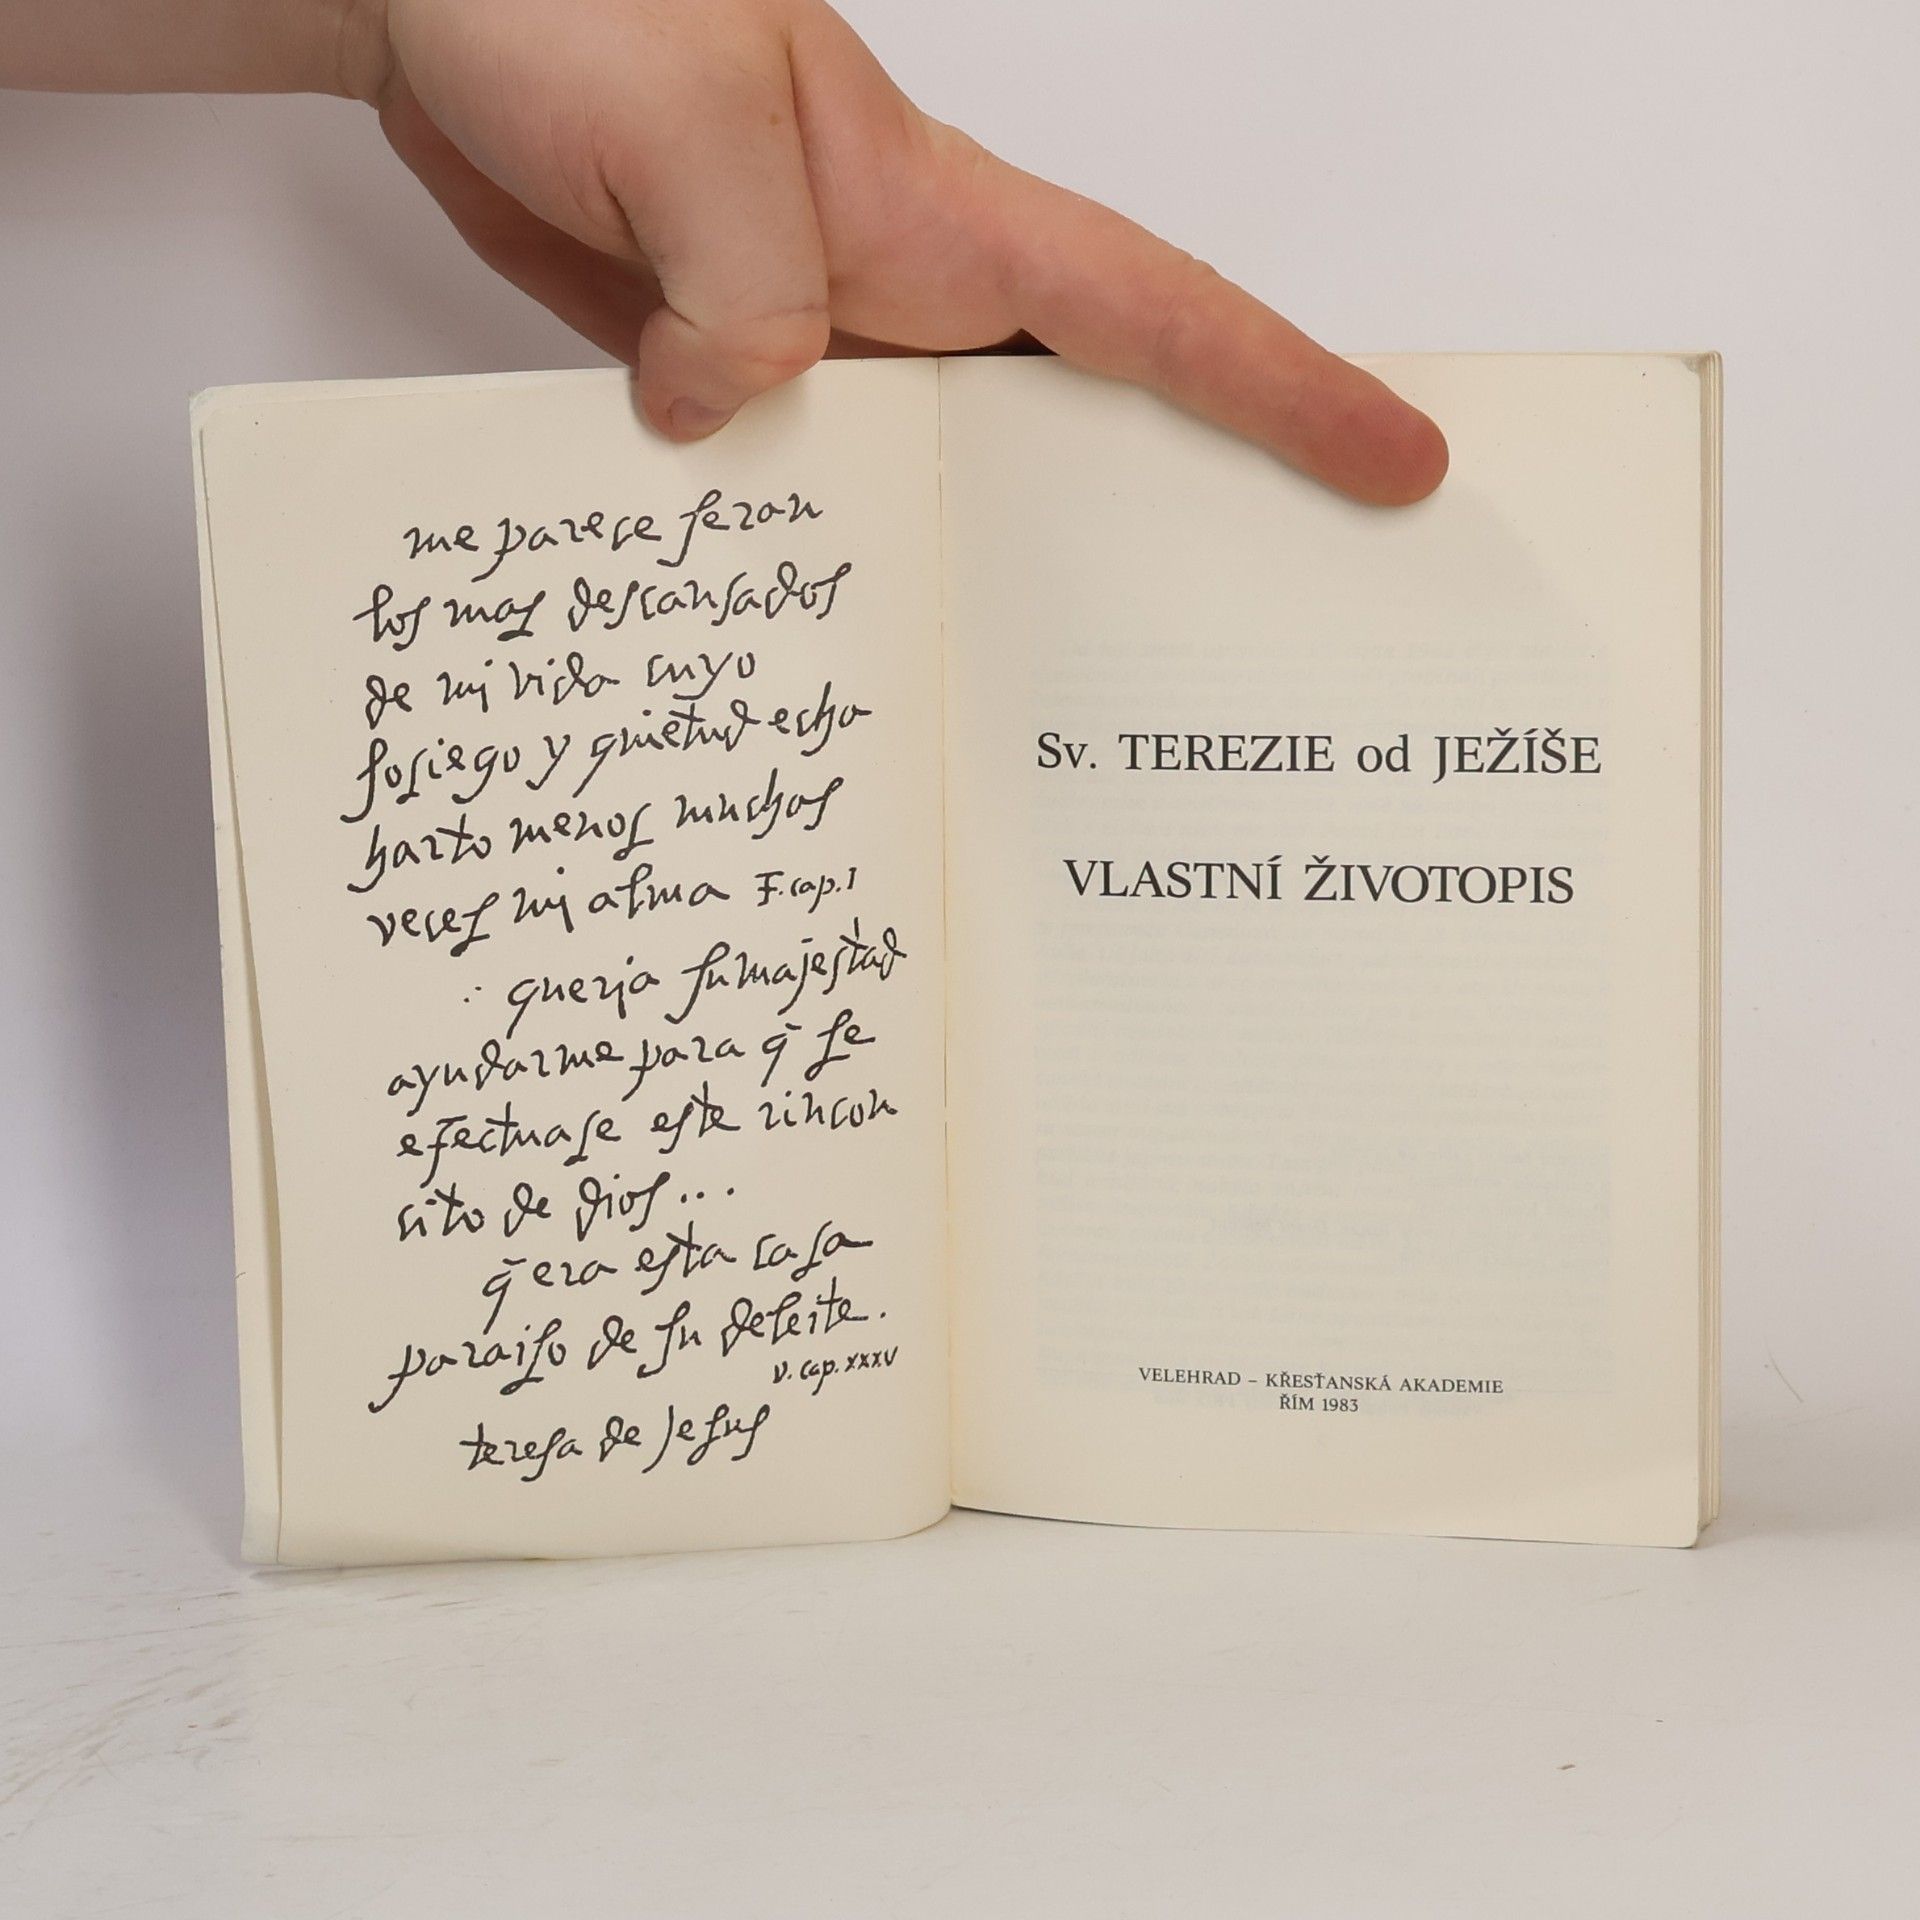 me parece seran
los mas descansados
de mj vida cuyo
sosiego y quietud echa
harto menos muchas
veces mj alma F. cap. I
∴ querja su majestad
ayudarme para q̄ se
efectuase este rincon
cito de dios...
q̄ era esta casa
paraiso de su deleite.
v. cap. XXXV
teresa de Jesus
Sv. TEREZIE od JEŽÍŠE
VLASTNÍ ŽIVOTOPIS
VELEHRAD – KŘESŤANSKÁ AKADEMIE
ŘÍM 1983